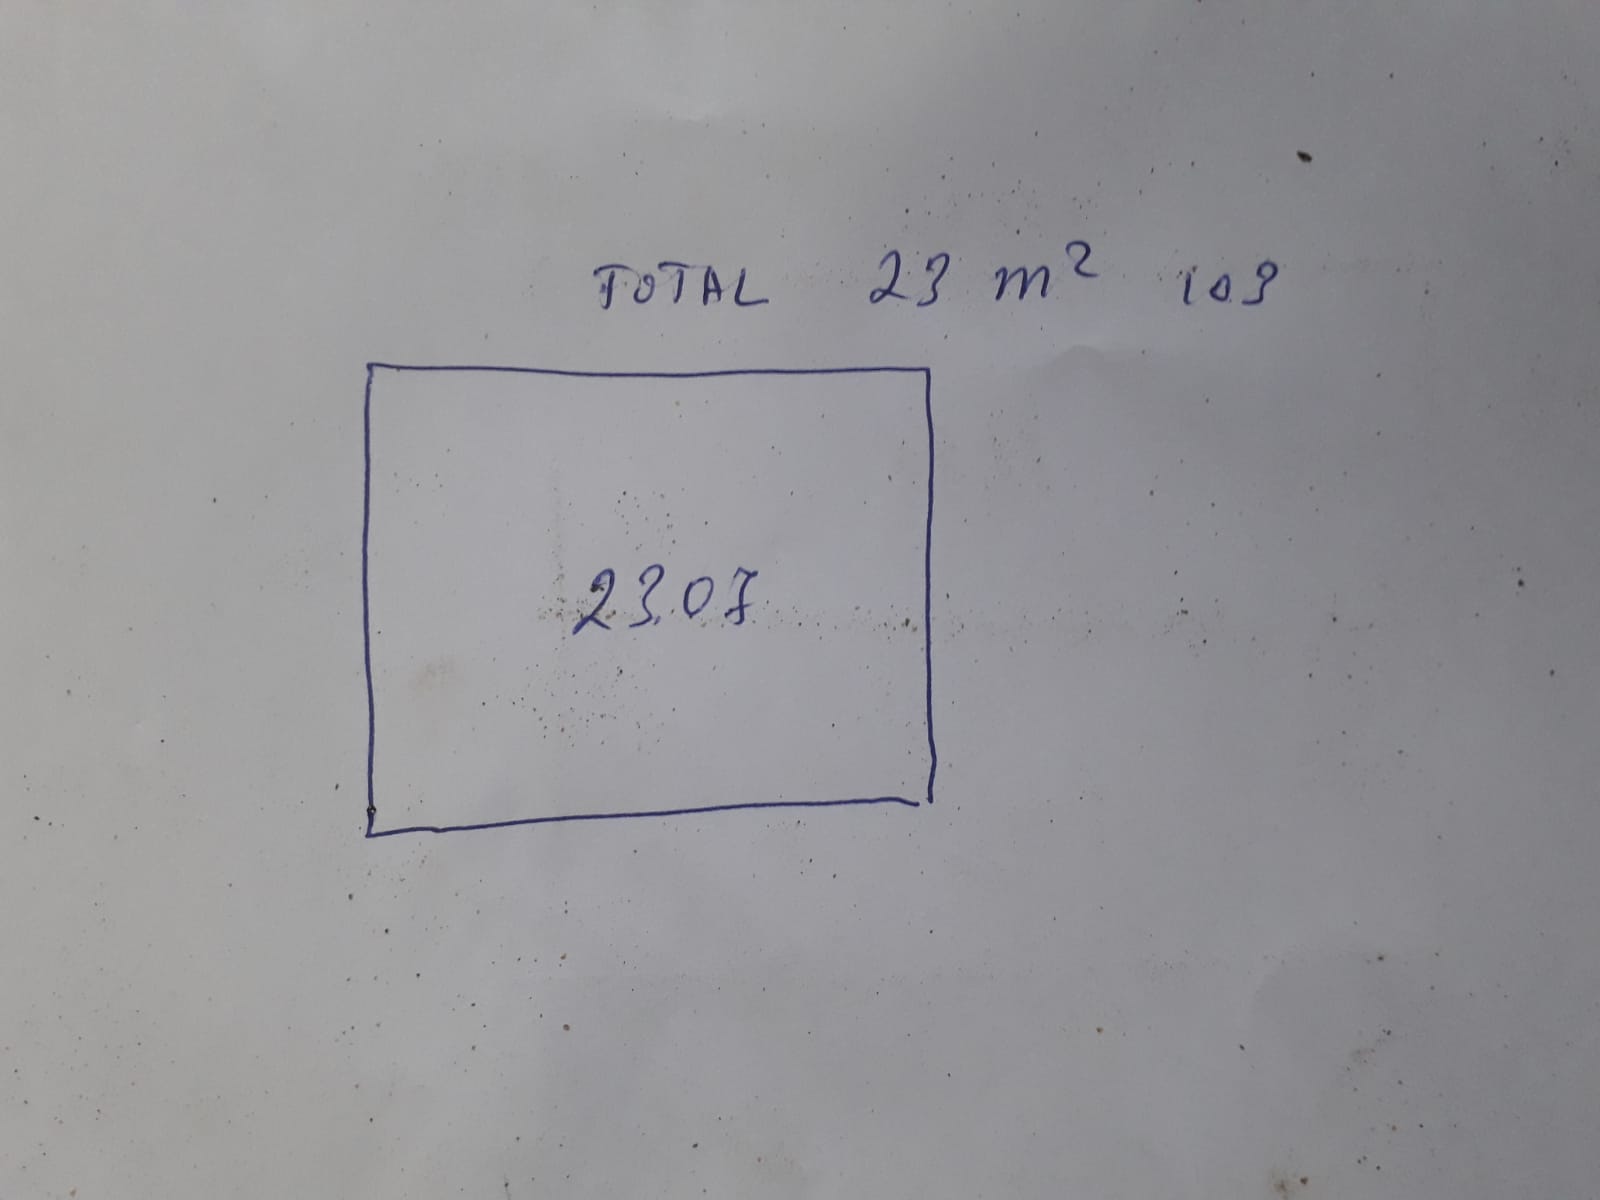 TOTAL 23 m² 103
23.07